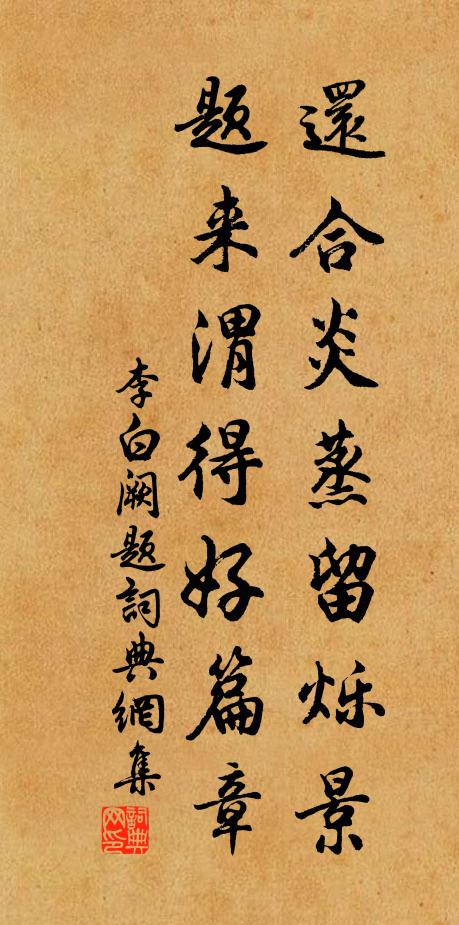 還合炎蒸留烁景
题来渭得好篇章
李白阙题詞典網集
詞典网印